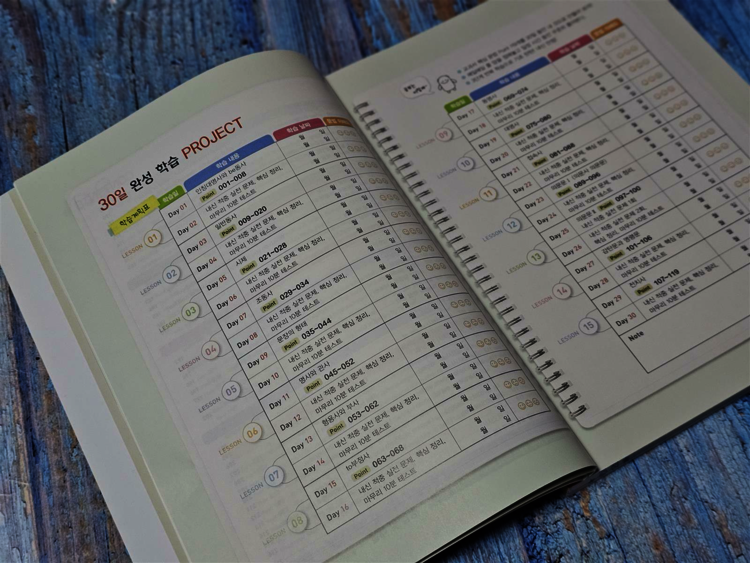 30일 완성 학습 PROJECT
학습계획표
학습일 학습 내용 학습 날짜
LESSON 01
Day 01 인칭대명사와 be동사
Point 001-008
월 일
Day 02 내신 적중 실전 문제, 핵심 정리,
마무리 10분 테스트
월 일
LESSON 02
Day 03 일반동사
Point 009-020
월 일
Day 04 내신 적중 실전 문제, 핵심 정리,
마무리 10분 테스트
월 일
LESSON 03
Day 05 시제
Point 021-028
월 일
Day 06 내신 적중 실전 문제, 핵심 정리,
마무리 10분 테스트
월 일
LESSON 04
Day 07 조동사
Point 029-034
월 일
Day 08 내신 적중 실전 문제, 핵심 정리,
마무리 10분 테스트
월 일
LESSON 05
Day 09 문장의 형태
Point 035-044
월 일
Day 10 내신 적중 실전 문제, 핵심 정리,
마무리 10분 테스트
월 일
LESSON 06
Day 11 명사와 관사
Point 045-052
월 일
Day 12 내신 적중 실전 문제, 핵심 정리,
마무리 10분 테스트
월 일
LESSON 07
Day 13 형용사와 부사
Point 053-062
월 일
Day 14 내신 적중 실전 문제, 핵심 정리,
마무리 10분 테스트
월 일
LESSON 08
Day 15 to부정사
Point 063-068
월 일
Day 16 내신 적중 실전 문제, 핵심 정리,
마무리 10분 테스트
월 일
학습일 학습 내용 학습 날짜
LESSON 09
Day 17 동명사
Point 069-074
월 일
Day 18 내신 적중 실전 문제, 핵심 정리,
마무리 10분 테스트
월 일
LESSON 10
Day 19 대명사
Point 075-080
월 일
Day 20 내신 적중 실전 문제, 핵심 정리,
마무리 10분 테스트
월 일
LESSON 11
Day 21
Point 081-088
월 일
Day 22 내신 적중 실전 문제, 핵심 정리,
마무리 10분 테스트
월 일
LESSON 12
Day 23
Day 24 내신 적중 실전 문제, 핵심 정리,
마무리 10분 테스트
월 일
LESSON 13
Day 25
Point 097-100
월 일
Day 26 내신 적중 실전 문제,
핵심 정리, 마무리 10분 테스트
월 일
LESSON 14
Day 27
Point 101-106
월 일
Day 28 내신 적중 실전 문제, 핵심 정리,
마무리 10분 테스트
월 일
LESSON 15
Day 29 전치사
Point 107-119
월 일
Day 30 내신 적중 실전 문제, 핵심 정리,
마무리 10분 테스트
월 일
Note